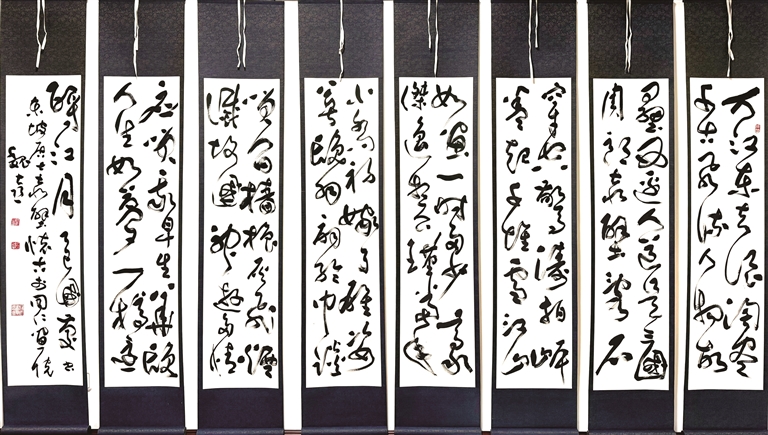 大江東去浪淘盡
千古風流人物故
壘西邊人道是三國
周郎赤壁亂石
穿空驚濤拍岸
捲起千堆雪江山
如畫一時多少豪
傑遙想公瑾當年
小喬初嫁了雄姿
英發羽扇綸巾談
笑間檣櫓灰飛煙
滅故國神遊多情
應笑我早生華髮
人生如夢一樽還
酹江月
東坡居士赤壁懷古